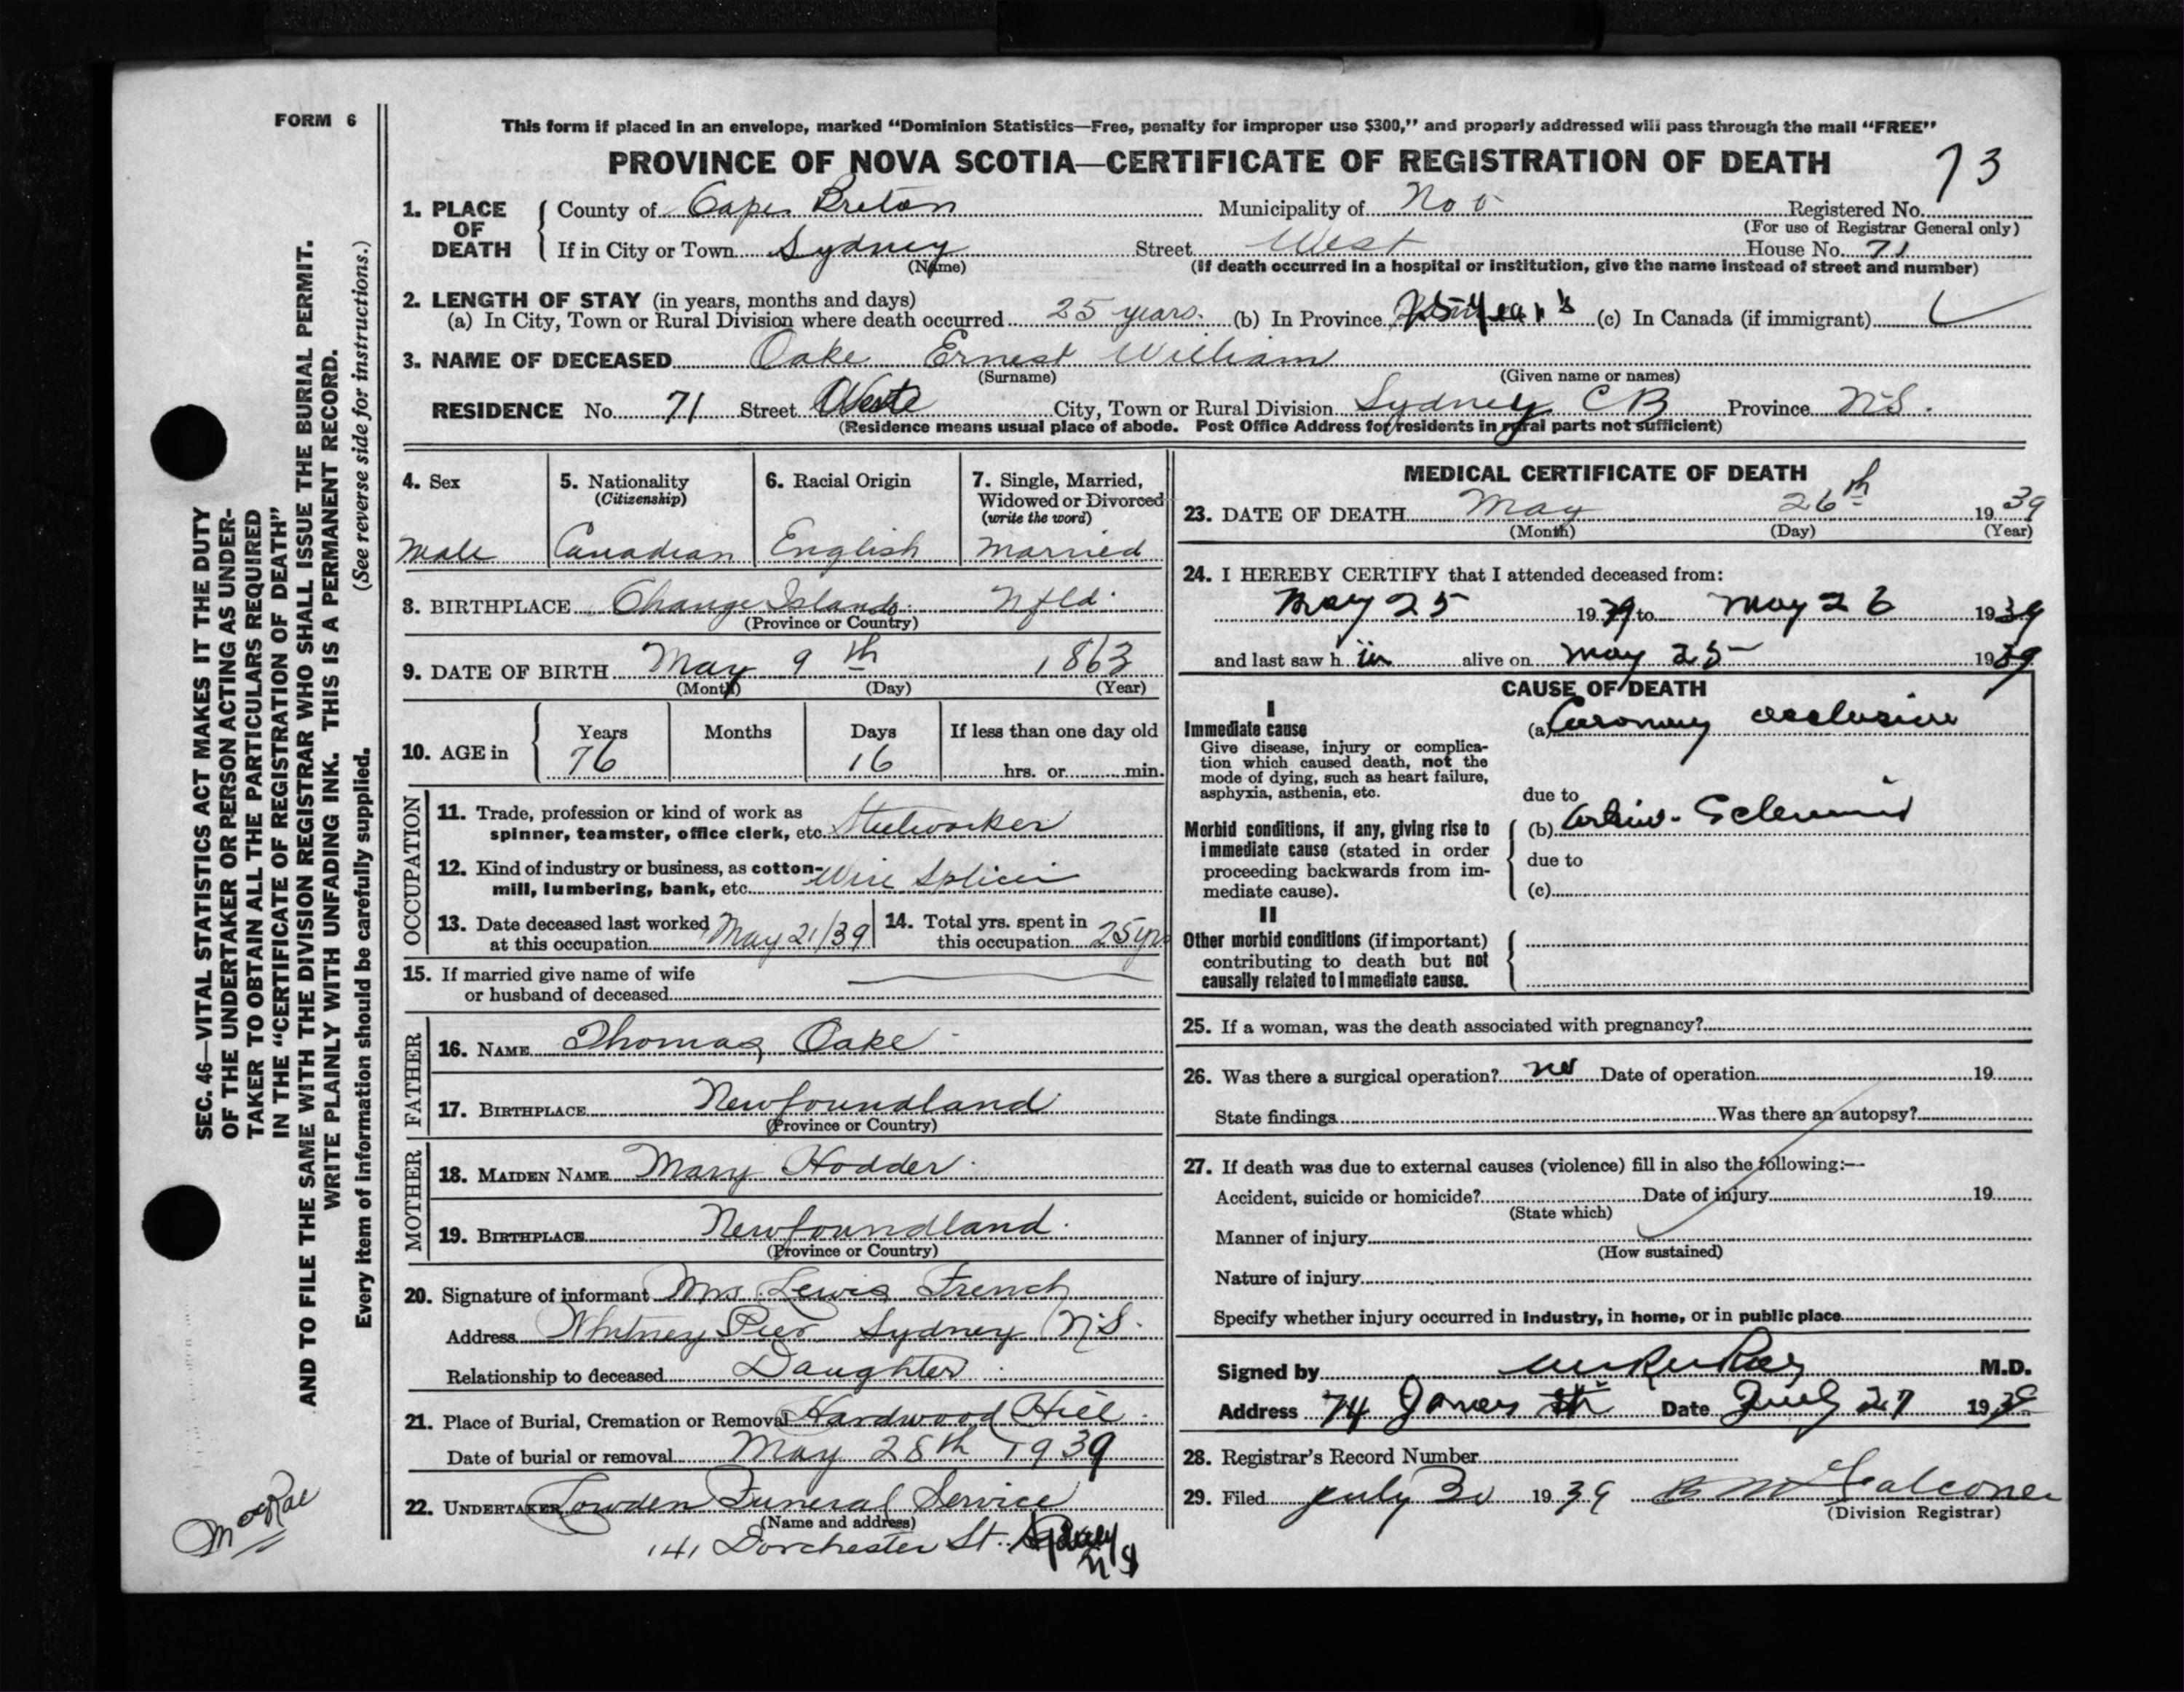 FORM 6
This form if placed in an envelope, marked "Dominion Statistics—Free, penalty for improper use $300," and properly addressed will pass through the mail "FREE"
PROVINCE OF NOVA SCOTIA—CERTIFICATE OF REGISTRATION OF DEATH
73
1. PLACE OF DEATH
County of Cape Breton Municipality of Registered No.
(For use of Registrar General only)
If in City or Town Sydney Street West House No. 71
(Name) (If death occurred in a hospital or institution, give the name instead of street and number)
2. LENGTH OF STAY (in years, months and days)
(a) In City, Town or Rural Division where death occurred 25 years. (b) In Province years (c) In Canada (if immigrant)
3. NAME OF DECEASED Oake Ernest William
(Surname) (Given name or names)
RESIDENCE No. 71 Street West City, Town or Rural Division Sydney CB Province N.S.
(Residence means usual place of abode. Post Office Address for residents in rural parts not sufficient)
4. Sex
Male
5. Nationality
(Citizenship)
Canadian
6. Racial Origin
English
7. Single, Married,
Widowed or Divorced
(write the word)
Married
8. BIRTHPLACE Change Islands Nfld.
(Province or Country)
9. DATE OF BIRTH May 9th 1863
(Month) (Day) (Year)
10. AGE in
Years Months Days If less than one day old
76 16 hrs. or min.
OCCUPATION
11. Trade, profession or kind of work as
spinner, teamster, office clerk, etc. Steelworker
12. Kind of industry or business, as cotton-
mill, lumbering, bank, etc. Wire Splicer
13. Date deceased last worked
at this occupation May 21/39
14. Total yrs. spent in
this occupation 25 yrs
15. If married give name of wife
or husband of deceased
FATHER
16. NAME Thomas Oake
17. BIRTHPLACE Newfoundland
(Province or Country)
MOTHER
18. MAIDEN NAME Mary Hodder
19. BIRTHPLACE Newfoundland.
(Province or Country)
20. Signature of informant Mrs Lewis French
Address Whitney Pier Sydney N.S.
Relationship to deceased Daughter
21. Place of Burial, Cremation or Removal Hardwood Hill
Date of burial or removal May 28th 1939
22. UNDERTAKER Lowden Funeral Service
(Name and address)
141 Dorchester St. Sydney
N S
MEDICAL CERTIFICATE OF DEATH
23. DATE OF DEATH May 26th 1939
(Month) (Day) (Year)
24. I HEREBY CERTIFY that I attended deceased from:
May 25 1939 to May 26 1939
and last saw h im alive on May 25 1939
CAUSE OF DEATH
I
Immediate cause
Give disease, injury or complica-
tion which caused death, not the
mode of dying, such as heart failure,
asphyxia, asthenia, etc.
(a) Coronary occlusion
due to
Morbid conditions, if any, giving rise to
immediate cause (stated in order
proceeding backwards from im-
mediate cause).
(b) Arterio-Sclerosis
due to
(c)
II
Other morbid conditions (if important)
contributing to death but not
causally related to immediate cause.
25. If a woman, was the death associated with pregnancy?
26. Was there a surgical operation? no Date of operation 19
State findings Was there an autopsy?
27. If death was due to external causes (violence) fill in also the following:—
Accident, suicide or homicide? Date of injury 19
(State which)
Manner of injury
(How sustained)
Nature of injury
Specify whether injury occurred in industry, in home, or in public place
Signed by M.D.
Address 74 Date July 27 1939
28. Registrar's Record Number
29. Filed July 30 1939 Falconer
(Division Registrar)
SEC. 46—VITAL STATISTICS ACT MAKES IT THE DUTY
OF THE UNDERTAKER OR PERSON ACTING AS UNDER-
TAKER TO OBTAIN ALL THE PARTICULARS REQUIRED
IN THE "CERTIFICATE OF REGISTRATION OF DEATH"
AND TO FILE THE SAME WITH THE DIVISION REGISTRAR WHO SHALL ISSUE THE BURIAL PERMIT.
WRITE PLAINLY WITH UNFADING INK. THIS IS A PERMANENT RECORD.
Every item of information should be carefully supplied. (See reverse side for instructions.)
MacRae